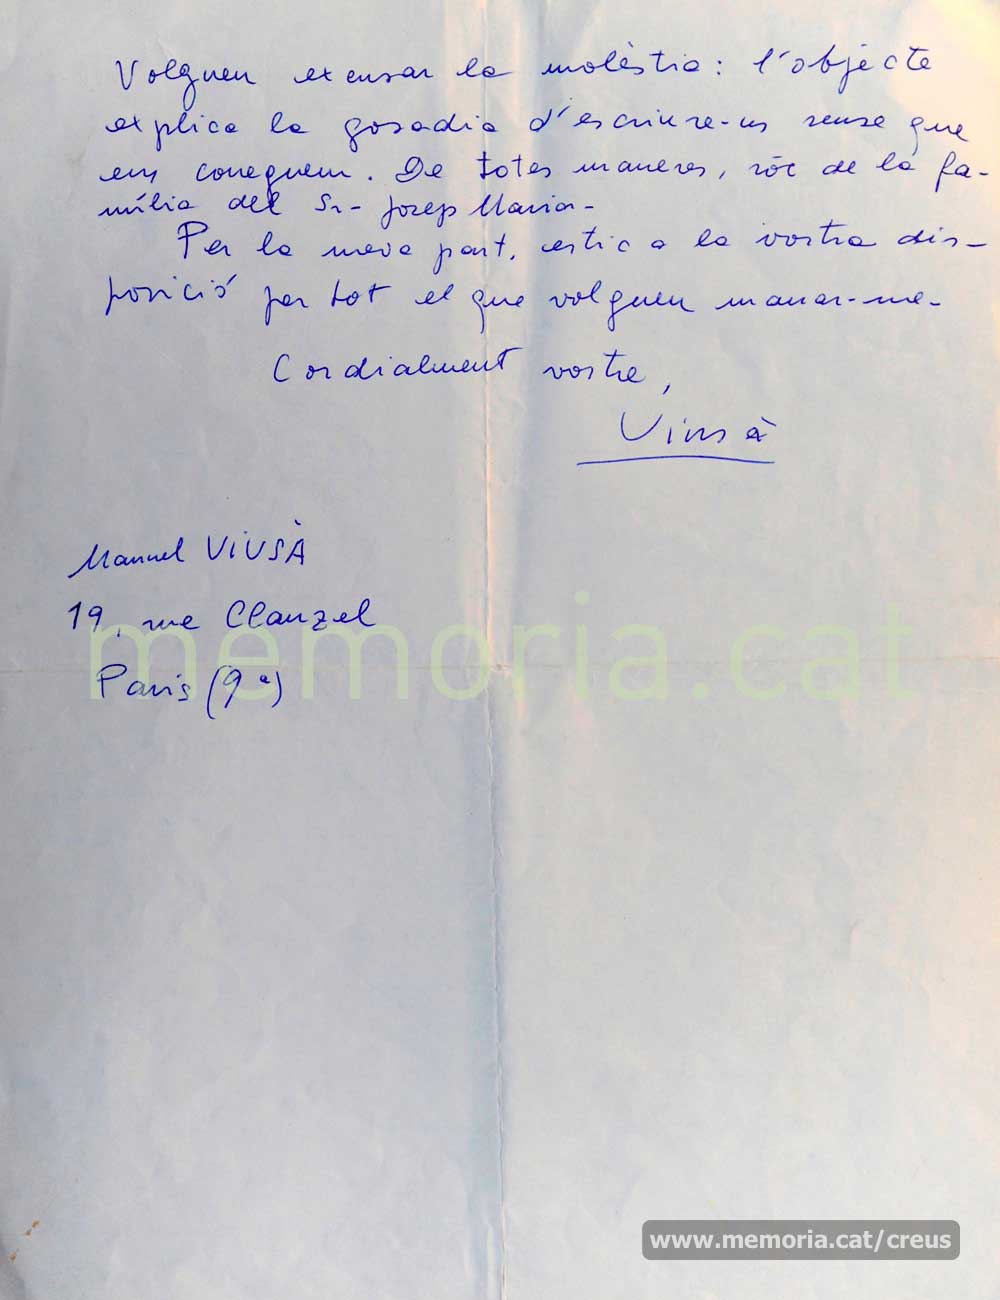 Volgueu excusar la molèstia: l'objecte
explica la gosadia d'escriure-us sense que
ens coneguem. De totes maneres, sóc de la fa-
mília del Sr. Josep Maria.
Per la meva part, estic a la vostra dis-
posició per tot el que volgueu manar-me.
Cordialment vostre,
Viusà
Manuel VIUSÀ
19, rue Clauzel
Paris (9e)
memoria.cat
www.memoria.cat/creus